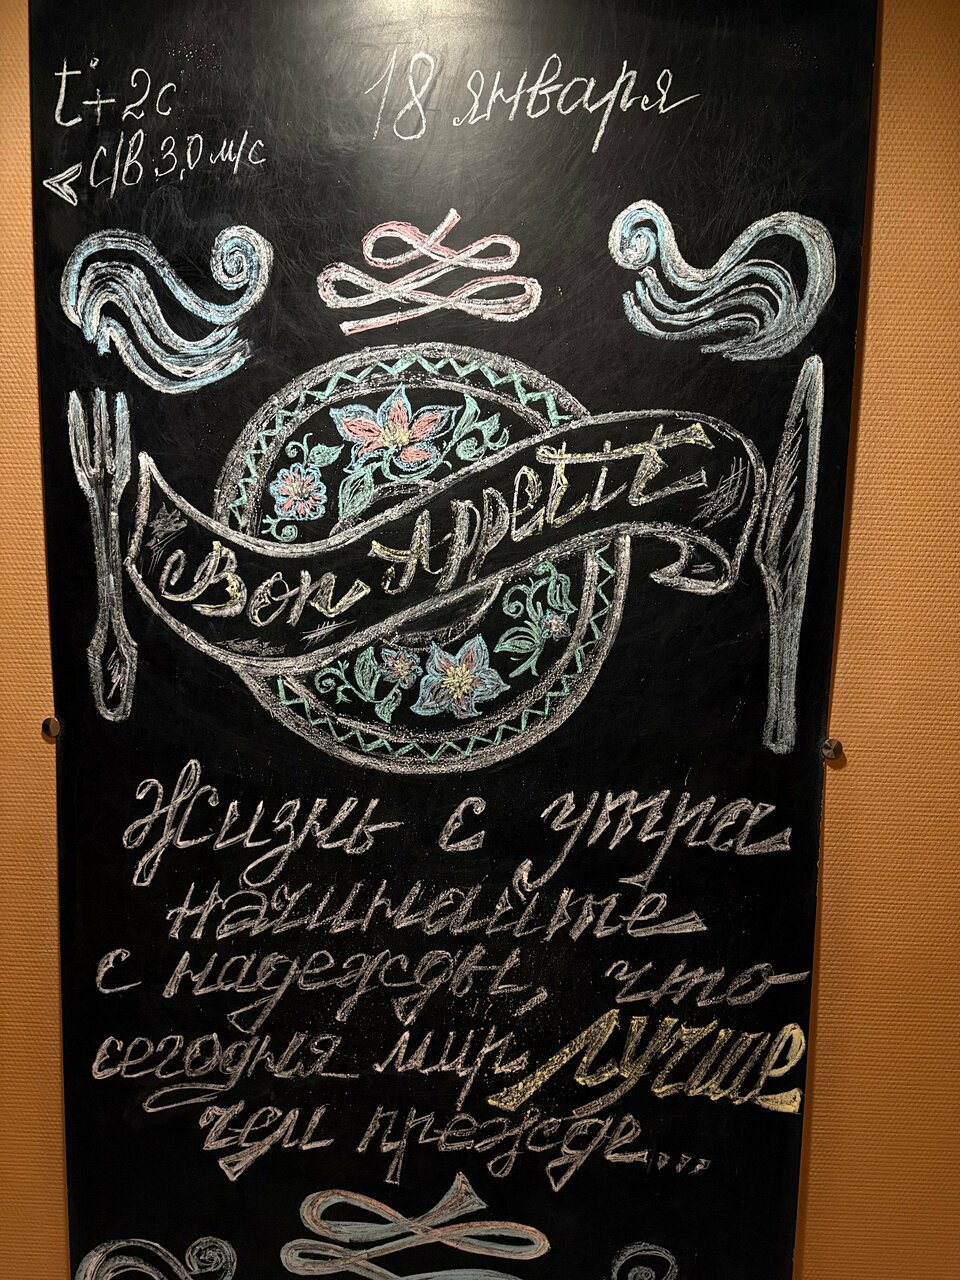 t°+2c
18 января
С/В 3,0 м/с
Bon Appetit
Жизнь с утра
начинайте
с надежды, что
сегодня мир лучше
чем прежде...